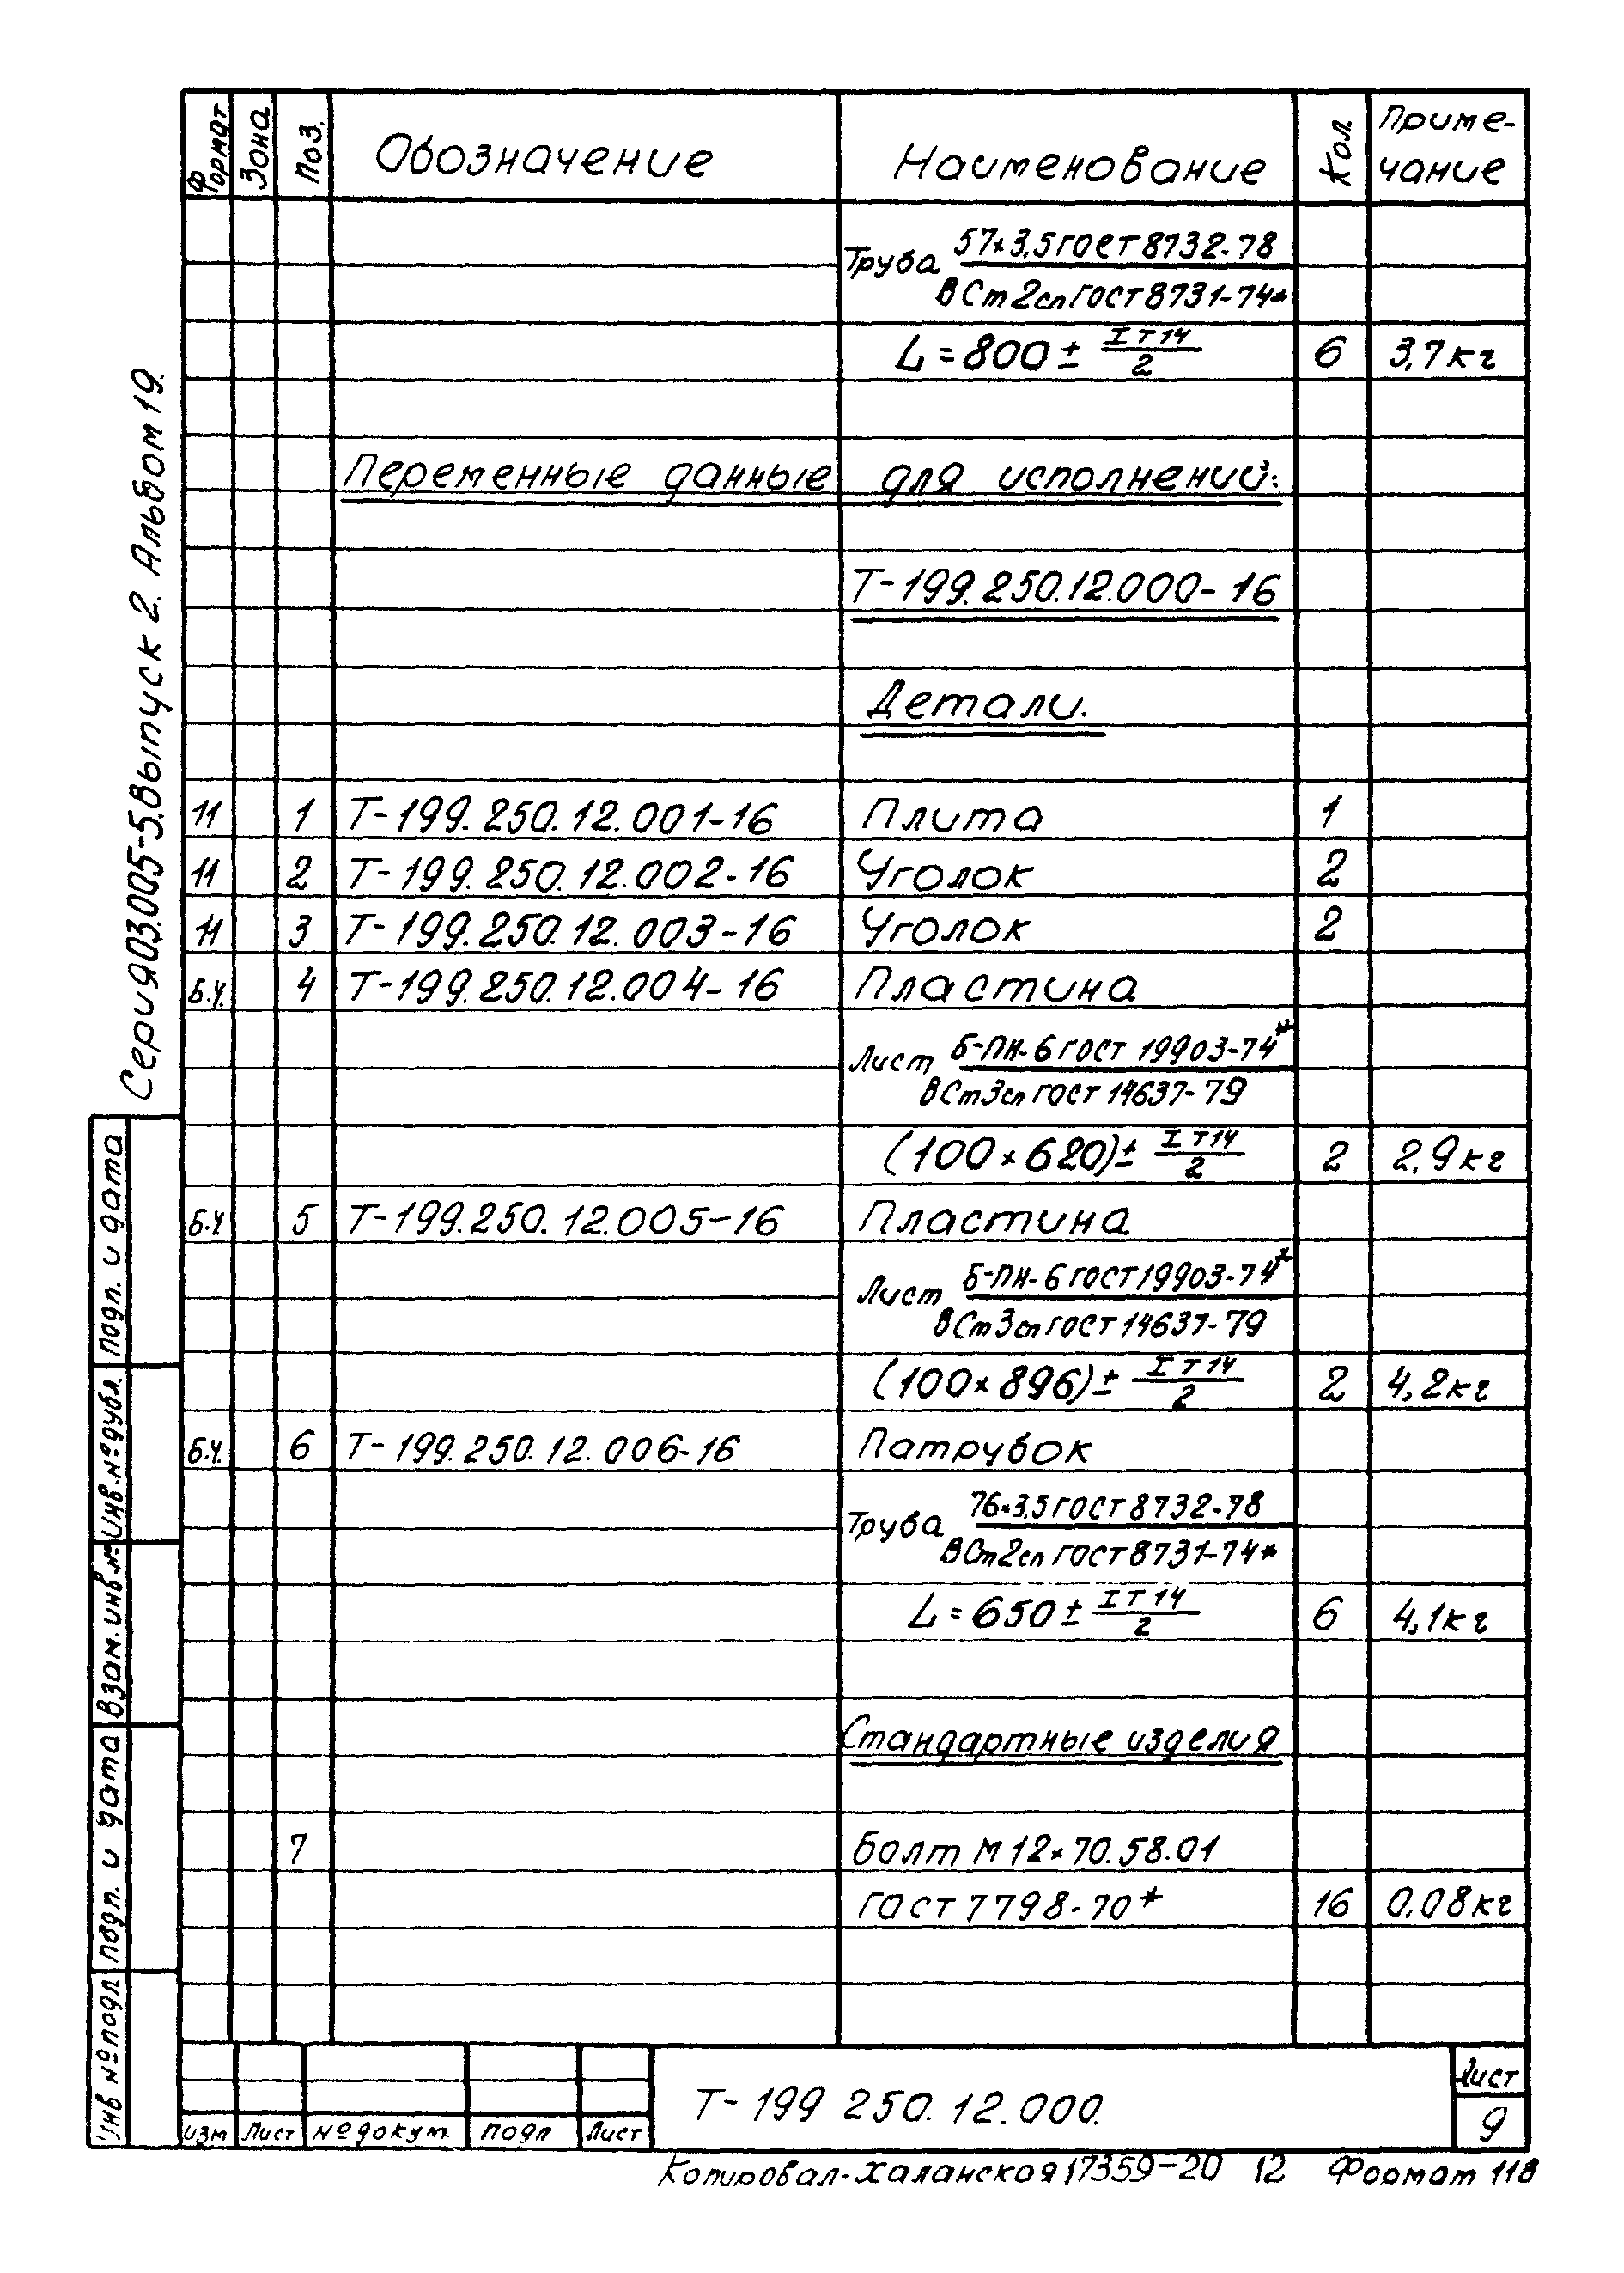 Формат Зона Поз. Обозначение Наименование Кол. Приме-
чание
Труба 57×3,5 гост 8732-78
ВСт2сп гост 8731-74*
L = 800 ± IT14/2 6 3,7кг
Переменные данные для исполнений:
Т-199.250.12.000-16
Детали.
11 1 Т-199.250.12.001-16 Плита 1
11 2 Т-199.250.12.002-16 Уголок 2
11 3 Т-199.250.12.003-16 Уголок 2
Б.Ч. 4 Т-199.250.12.004-16 Пластина
Лист Б-ПН-6 гост 19903-74*
ВСт3сп гост 14637-79
(100×620)± IT14/2 2 2,9кг
Б.Ч 5 Т-199.250.12.005-16 Пластина
Лист Б-ПН-6 гост 19903-74*
ВСт3сп гост 14637-79
(100×896)± IT14/2 2 4,2кг
Б.Ч. 6 Т-199.250.12.006-16 Патрубок
Труба 76×3,5 гост 8732-78
ВСт2сп гост 8731-74*
L = 650 ± IT14/2 6 4,1кг
Стандартные изделия
7 Болт М12×70.58.01
гост 7798-70* 16 0,08кг
Серия 903.005-5.Выпуск 2. Альбом 19.
Подп. и дата
Инв.№дубл.
Взам.инв.№
Подп. и дата
Инв №подл
изм Лист №докум. подп Лист
Т-199 250.12.000.
Лист
9
Копировал-Халанская 17359-20 12 Формат 11В